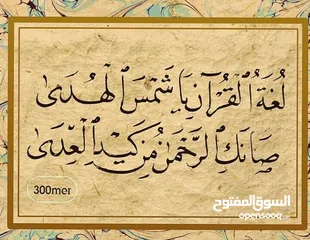 لُغَةُ الْقُرْآنِ يَا شَمْسَ الْهُدَى
صَانَكِ الرَّحْمَنُ مِنْ كَيْدِ الْعِدَى
300mer
السوق المفتوح
opensooq.com